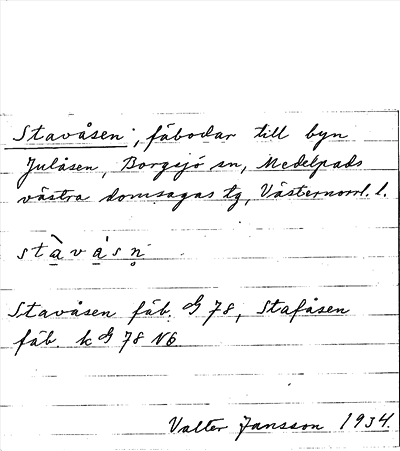 Stavåsen, fäbodar till byn
Julåsen, Borgsjö sn, Medelpads
västra domsagas tg, Västernorrl. l.
stàvásn̥
Stavåsen fäb. G 78, Stafåsen
fäb. k G 78 N6
Valter Jansson 1934.